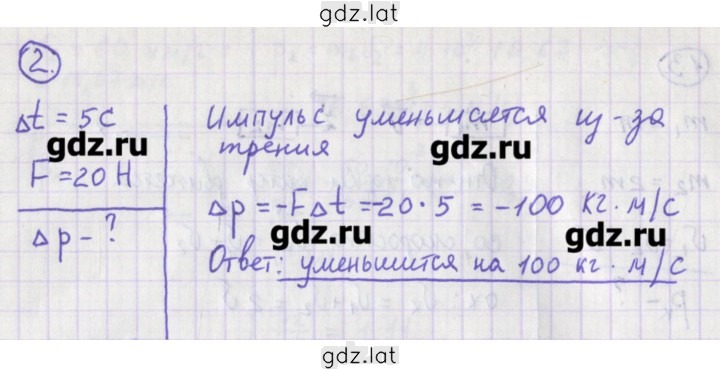 gdz.lat
2.
Δt = 5 с
gdz.ru
F = 20 Н
Δp - ?
Импульс уменьшается из-за
трения
gdz.ru
Δp = -FΔt = -20 · 5 = -100 кг · м/с
gdz.ru
gdz.ru
Ответ: уменьшится на 100 кг · м/с
gdz.lat